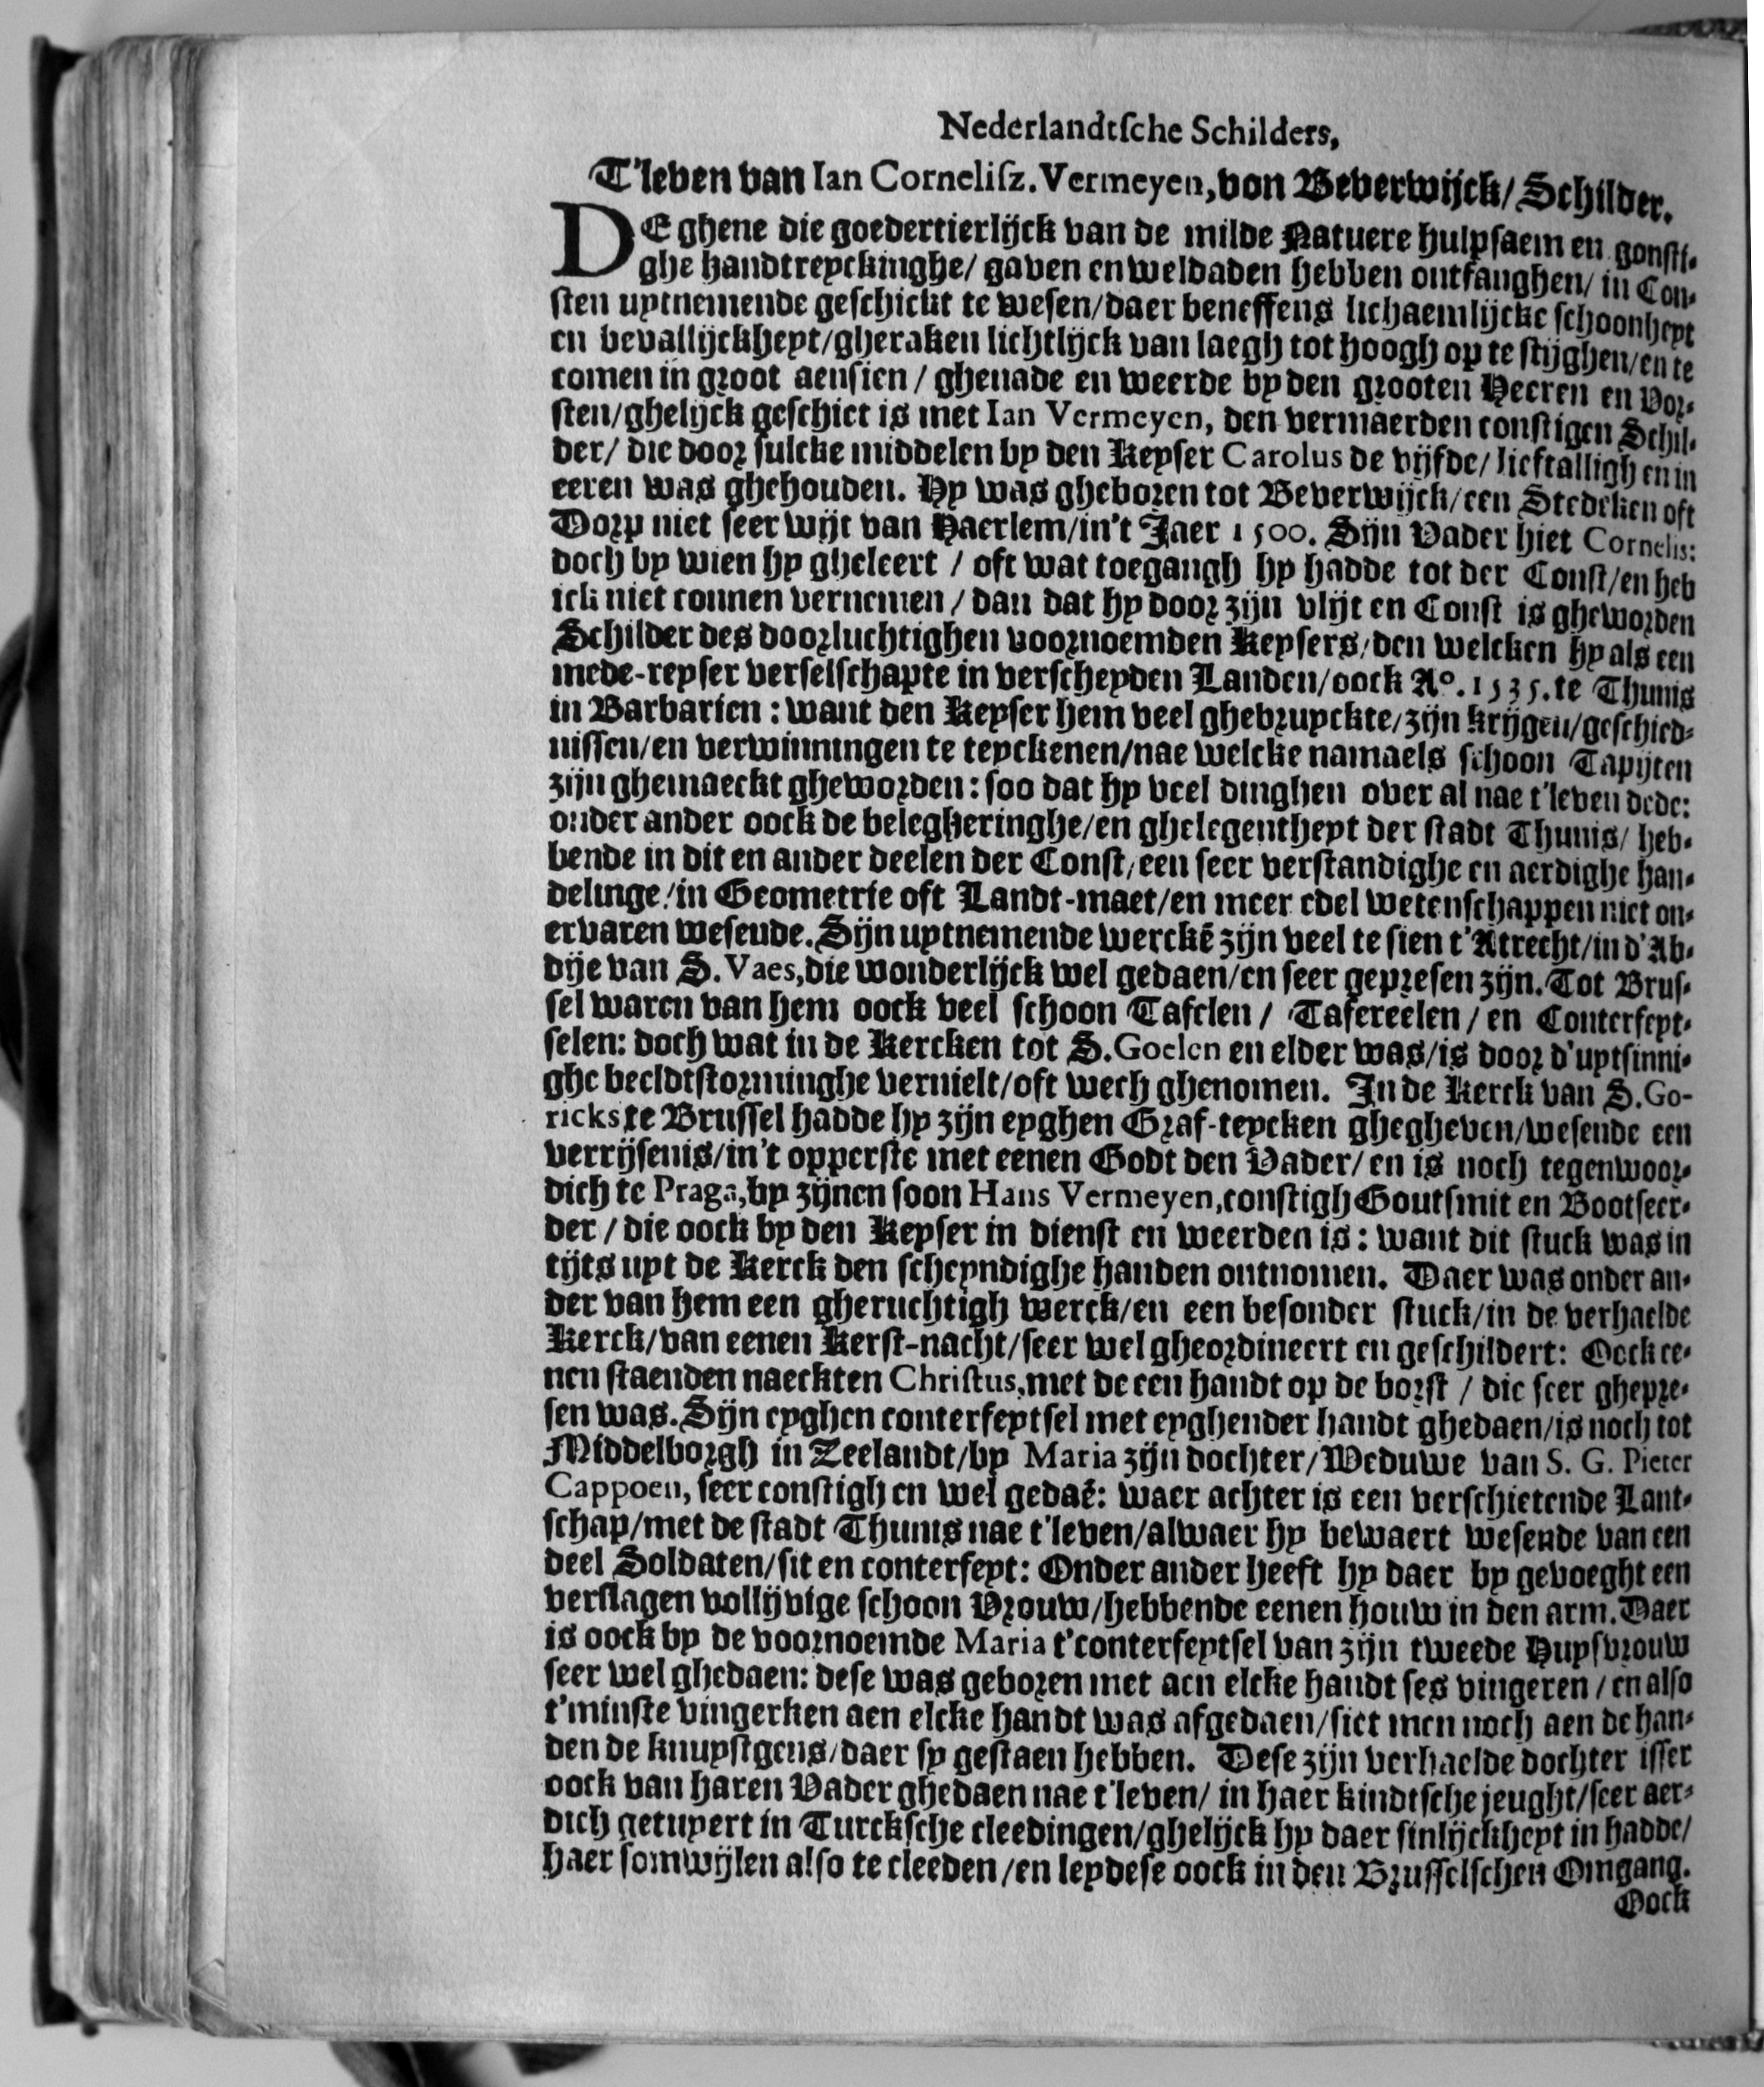 Nederlandtsche Schilders,
T'leven van Ian Cornelisz. Vermeyen, von Beverwijck/ Schilder.
DE ghene die goedertierlijck van de milde Natuere hulpsaem en gonsti-
ghe handtreyckinghe/ gaven en weldaden hebben ontfanghen/ in Con-
sten uytnemende geschickt te wesen/ daer beneffens lichaemlijcke schoonheyt
en bevallijckheyt/ gheraken lichtlijck van laegh tot hoogh op te stijghen/ en te
comen in groot aensien / ghenade en weerde by den grooten Heeren en Vor-
sten/ ghelijck geschiet is met Ian Vermeyen, den vermaerden constigen Schil-
der/ die door sulcke middelen by den Keyser Carolus de vijfde/ lieftalligh en in
eeren was ghehouden. Hy was gheboren tot Beverwijck/ een Stedeken oft
Dorp niet seer wijt van Haerlem/ in't Jaer 1500. Sijn Vader hiet Cornelis:
doch by wien hy gheleert / oft wat toegangh hy hadde tot der Const/ en heb
ick niet connen vernemen / dan dat hy door zijn vlijt en Const is gheworden
Schilder des doorluchtighen voornoemden Keysers/ den welcken hy als een
mede-reyser verselschapte in verscheyden Landen/ oock Aº. 1535. te Thunis
in Barbarien : want den Keyser hem veel ghebruyckte/ zijn krijgen/ geschied-
nissen/ en verwinningen te teyckenen/ nae welcke namaels schoon Tapijten
zijn ghemaeckt gheworden : soo dat hy veel dinghen over al nae t'leven dede:
onder ander oock de belegheringhe/ en ghelegentheyt der stadt Thunis/ heb-
bende in dit en ander deelen der Const/ een seer verstandighe en aerdighe han-
delinge/ in Geometrie oft Landt-maet/ en meer edel wetenschappen niet on-
ervaren wesende. Sijn uytnemende werckē zijn veel te sien t'Atrecht/ in d'Ab-
dije van S. Vaes, die wonderlijck wel gedaen/ en seer gepresen zijn. Tot Brus-
sel waren van hem oock veel schoon Tafelen / Tafereelen / en Conterfeyt-
selen: doch wat in de Kercken tot S. Goelen en elder was/ is door d'uytsinni-
ghe beeldtstorminghe vernielt/ oft wech ghenomen. In de Kerck van S. Go-
ricks te Brussel hadde hy zijn eyghen Graf-teycken ghegheven/ wesende een
verrijsenis/ in't opperste met eenen Godt den Vader/ en is noch tegenwoor-
dich te Praga, by zijnen soon Hans Vermeyen, constigh Goutsmit en Bootseer-
der / die oock by den Keyser in dienst en weerden is : want dit stuck was in
tijts uyt de Kerck den scheyndighe handen ontnomen. Daer was onder an-
der van hem een gheruchtigh werck/ en een besonder stuck/ in de verhaelde
Kerck/ van eenen Kerst-nacht/ seer wel gheordineert en geschildert: Oock ee-
nen staenden naeckten Christus, met de een handt op de borst / die seer ghepre-
sen was. Sijn eyghen conterfeytsel met eyghender handt ghedaen/ is noch tot
Middelborgh in Zeelandt/ by Maria zijn dochter/ Weduwe van S. G. Pieter
Cappoen, seer constigh en wel gedaē: waer achter is een verschietende Lant-
schap/ met de stadt Thunis nae t'leven/ alwaer hy bewaert wesende van een
deel Soldaten/ sit en conterfeyt: Onder ander heeft hy daer by gevoeght een
verslagen vollijvige schoon Vrouw/ hebbende eenen houw in den arm. Daer
is oock by de voornoemde Maria t'conterfeytsel van zijn tweede Huysvrouw
seer wel ghedaen: dese was geboren met aen elcke handt ses vingeren / en also
t'minste vingerken aen elcke handt was afgedaen/ siet men noch aen de han-
den de knuystgens/ daer sy gestaen hebben. Dese zijn verhaelde dochter isser
oock van haren Vader ghedaen nae t'leven/ in haer kindtsche jeught/ seer aer-
dich getuyert in Turcksche cleedingen/ ghelijck hy daer sinlijckheyt in hadde/
haer somwijlen also te cleeden / en leydese oock in den Brusselschen Omgang.
Oock